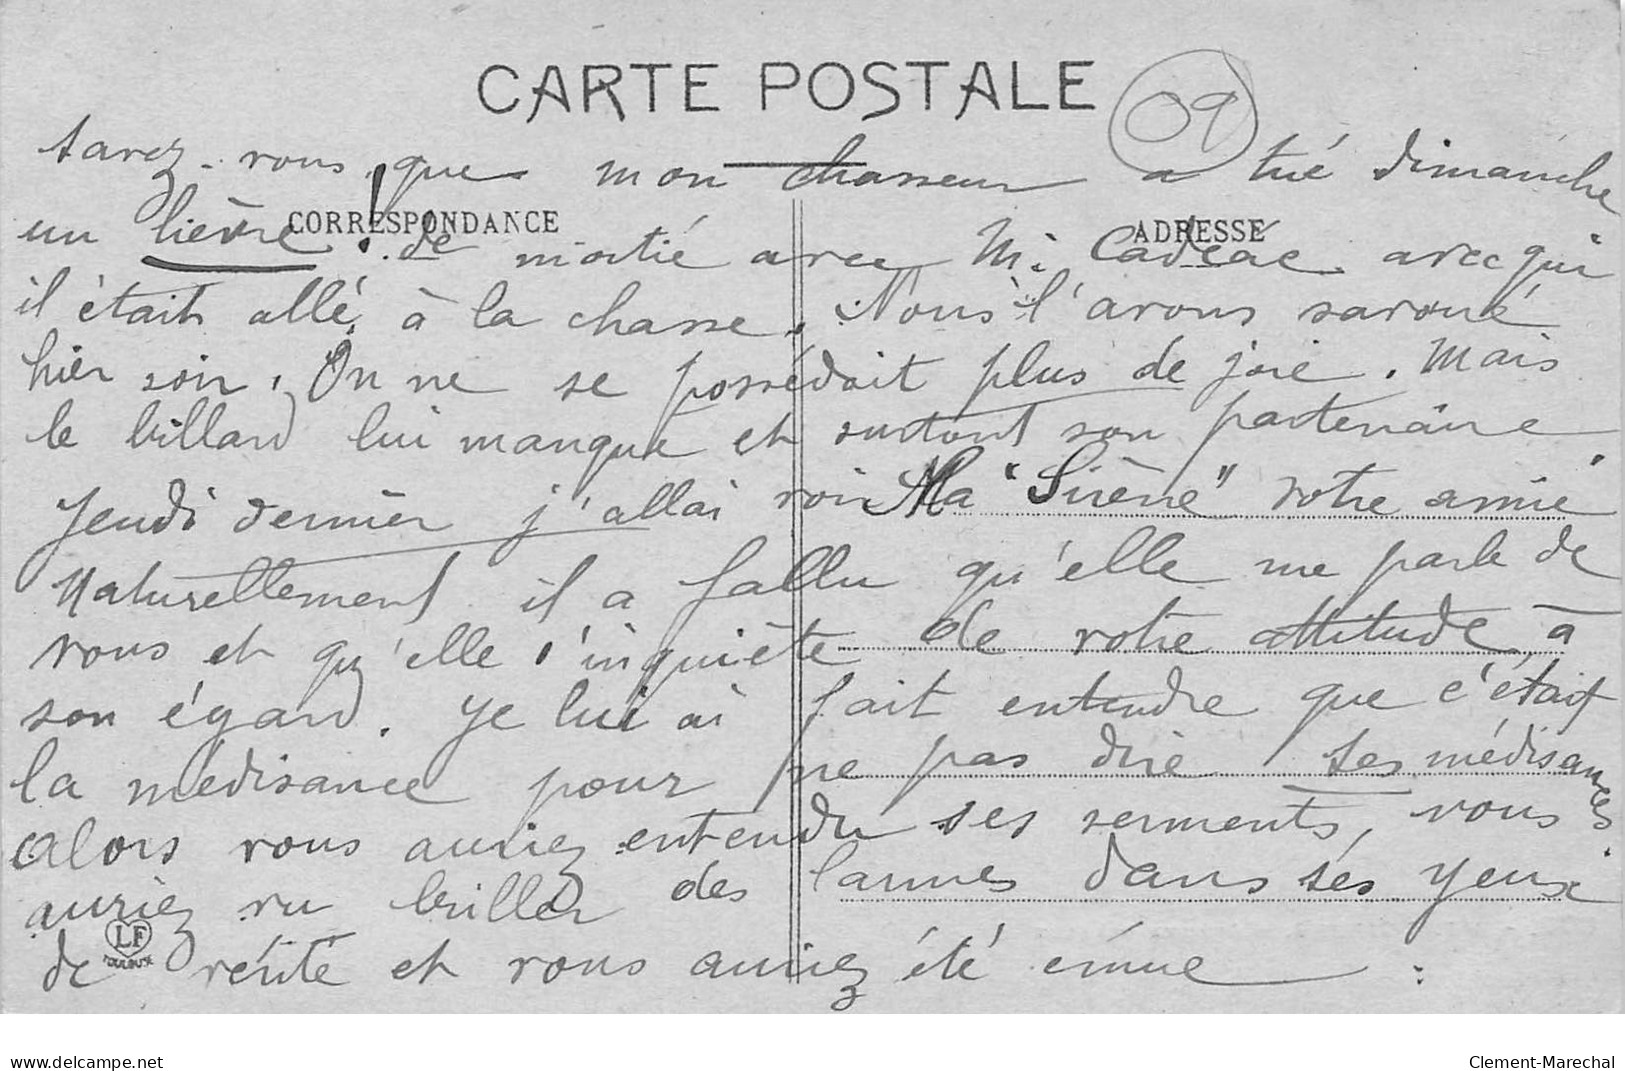 CARTE POSTALE
09
Savez-vous que mon chasseur a tué dimanche
CORRESPONDANCE
ADRESSE
un lièvre ! de moitié avec M. Cadeac avec qui
il était allé à la chasse. Nous l'avons savouré
hier soir. On ne se possédait plus de joie. Mais
le billard lui manque et surtout son partenaire.
Jeudi dernier j'allai voir Ma "Sirène" votre amie
Naturellement il a fallu qu'elle me parle de
vous et qu'elle s'inquiète de votre attitude à
son égard. Je lui ai fait entendre que c'était
la médisance pour ne pas dire ses médisances.
Alors vous auriez entendu ses serments, vous
auriez vu briller des larmes dans ses yeux
LF
TOULOUSE
de vérité et vous auriez été émue :
www.delcampe.net
Clement-Marechal